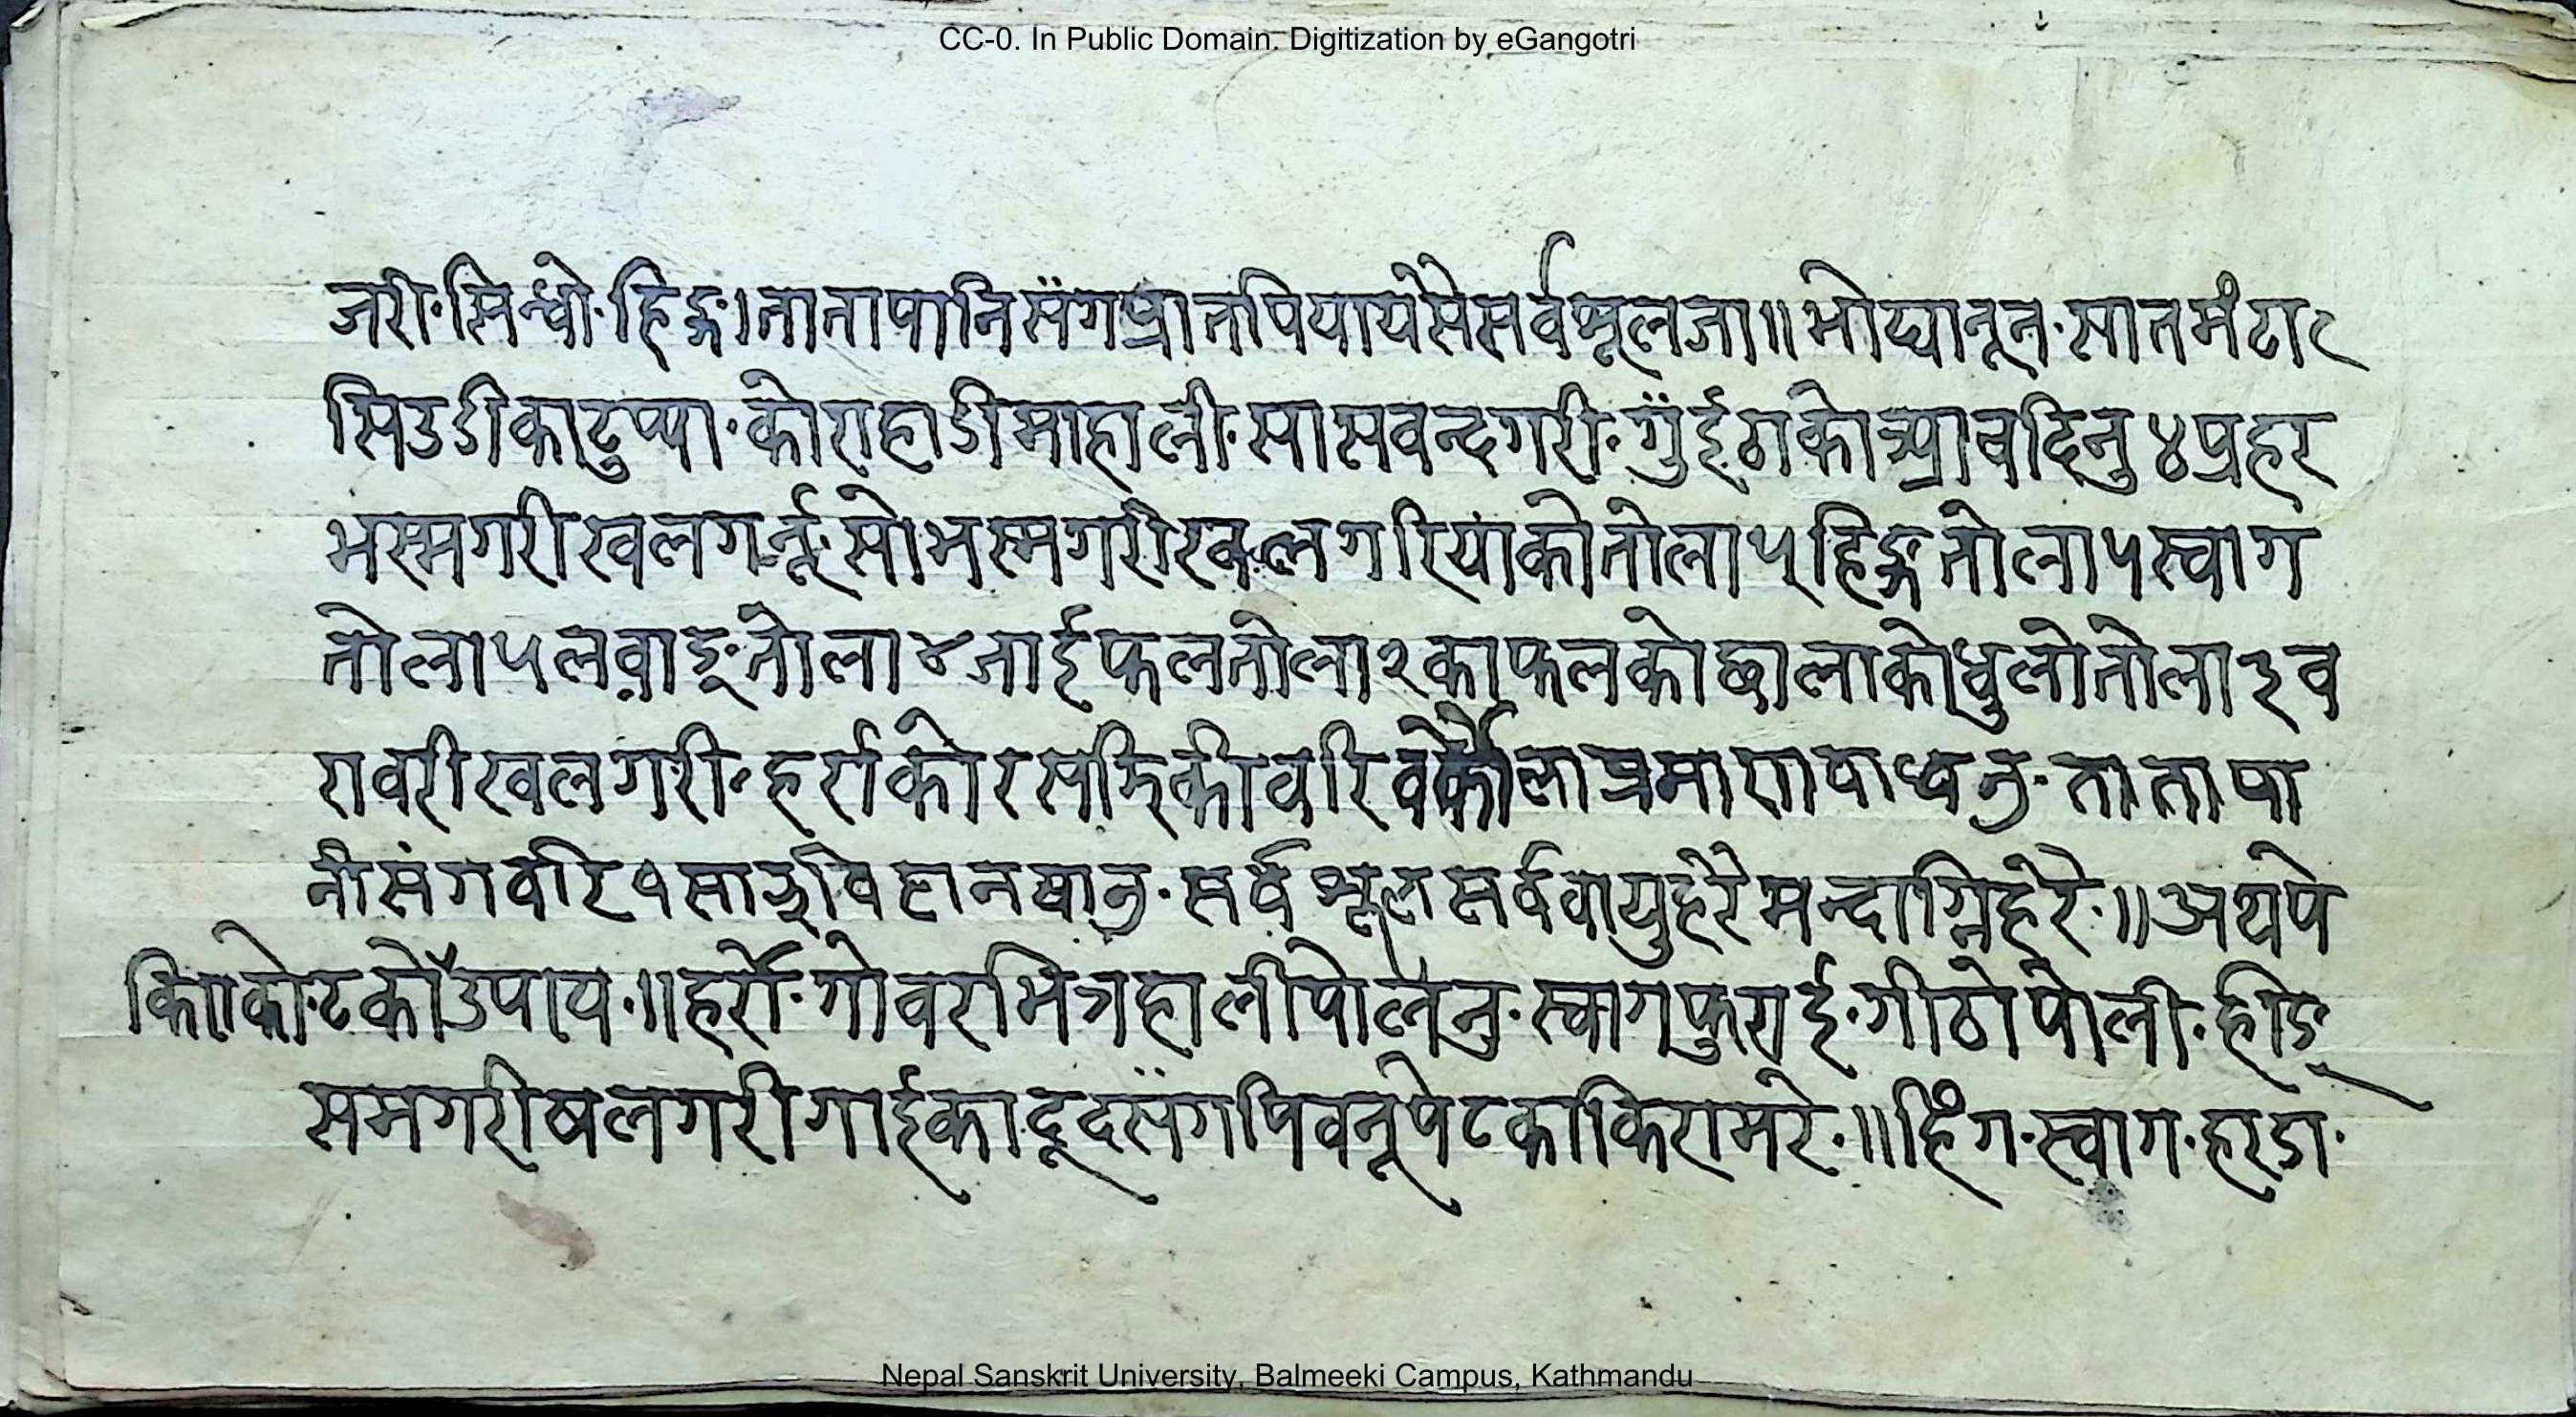 CC-0. In Public Domain. Digitization by eGangotri
जरी·सिन्धो·हिङ्ग।तातापानिसँगप्रातपियायेसैसर्वशूलजा॥भोद्यानून·सातमंटा
सिउडीकाटुप्पा·कोराहाडीमाहाली·सासवन्दगरी·गुँईठाकोआवदिनु४प्रहर
भस्मगरीखलगर्नू·सोभस्मगरीखलगरियाकोतोला५हिङ्गतोला५स्वाग
तोला५लवाङ्तोला४जाईफलतोला२काफलकोछालाकोधुलोतोला३व
रावरीखलगरी·हर्राकोरसझिकीवरि प्रमाणवाध्वनु·तातापा
नीसंगवरि१साझविहानषानु·सर्वशूलसर्ववायुहरेमन्दाग्निहरे·॥अथपे
टकोउपाय·॥हर्रो·गोवरभित्रहालीपोल्नु·स्वागफुराई·गीठोपोली·हीङ्
समगरीषलगरीगाईकादूदसँगपिवनूपेटकाकिरामरे·॥हिंग·स्वाग·हरडा·
Nepal Sanskrit University, Balmeeki Campus, Kathmandu